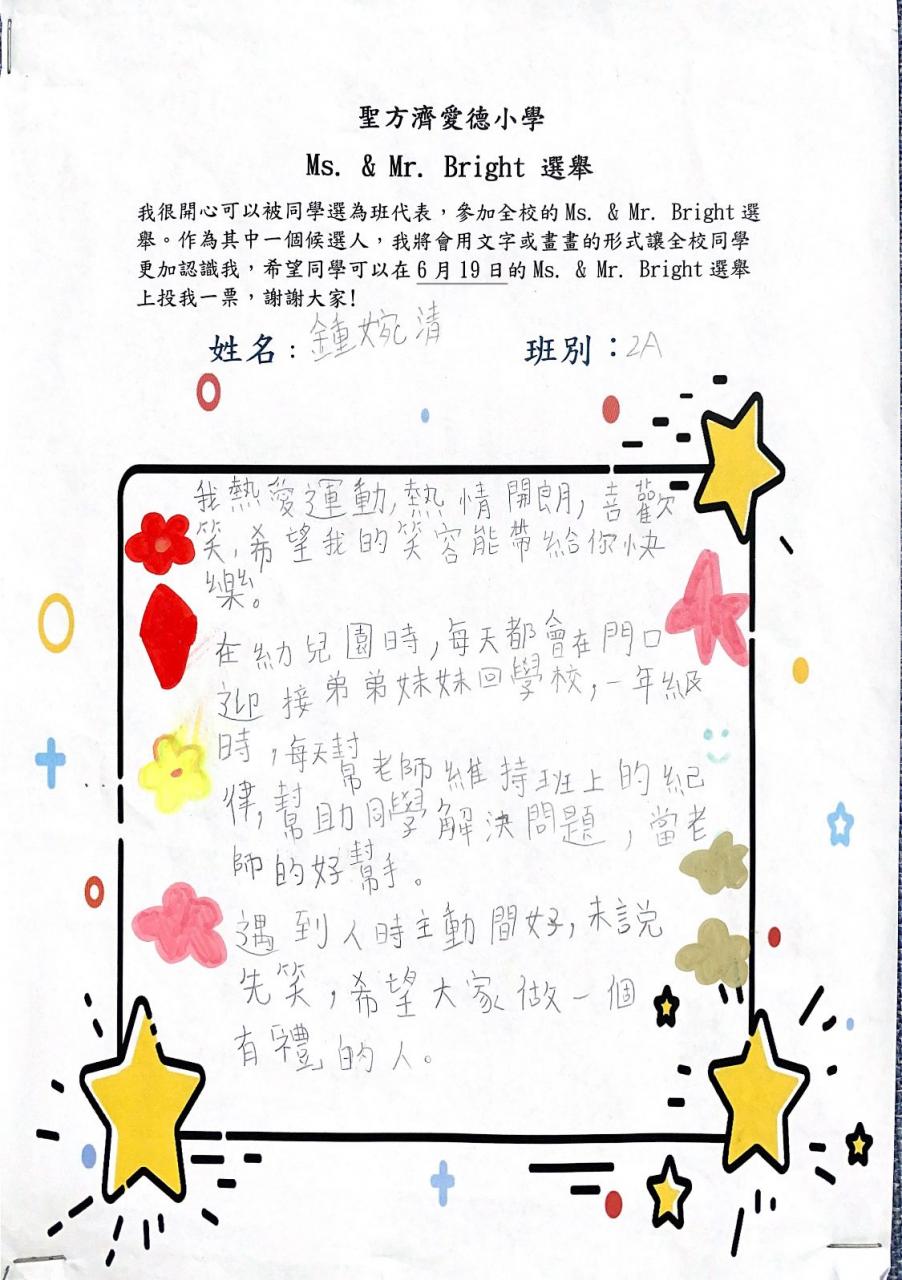 聖方濟愛德小學
Ms. & Mr. Bright 選舉
我很開心可以被同學選為班代表，參加全校的 Ms. & Mr. Bright 選
舉。作為其中一個候選人，我將會用文字或畫畫的形式讓全校同學
更加認識我，希望同學可以在 6 月 19 日的 Ms. & Mr. Bright 選舉
上投我一票，謝謝大家！
姓名：鍾婉清 班別：2A
我熱愛運動，熱情開朗，喜歡
笑，希望我的笑容能帶給你快
樂。
在幼兒園時，每天都會在門口
迎接弟弟妹妹回學校，一年級
時，每天幫老師維持班上的紀
律，幫助同學解決問題，當老
師的好幫手。
遇到人時主動間好，未說
先笑，希望大家做一個
有禮的人。